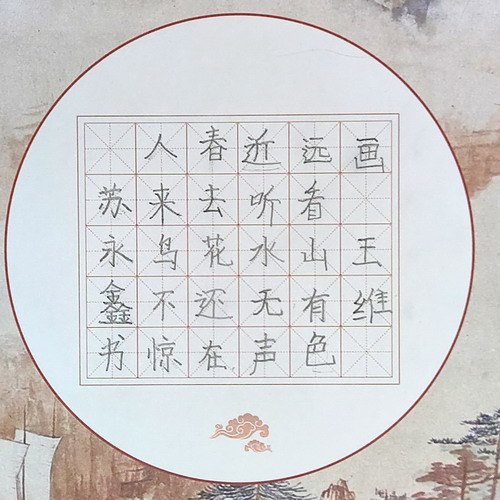 画
王维
远看山有色
近听水无声
春去花还在
人来鸟不惊
苏永鑫书